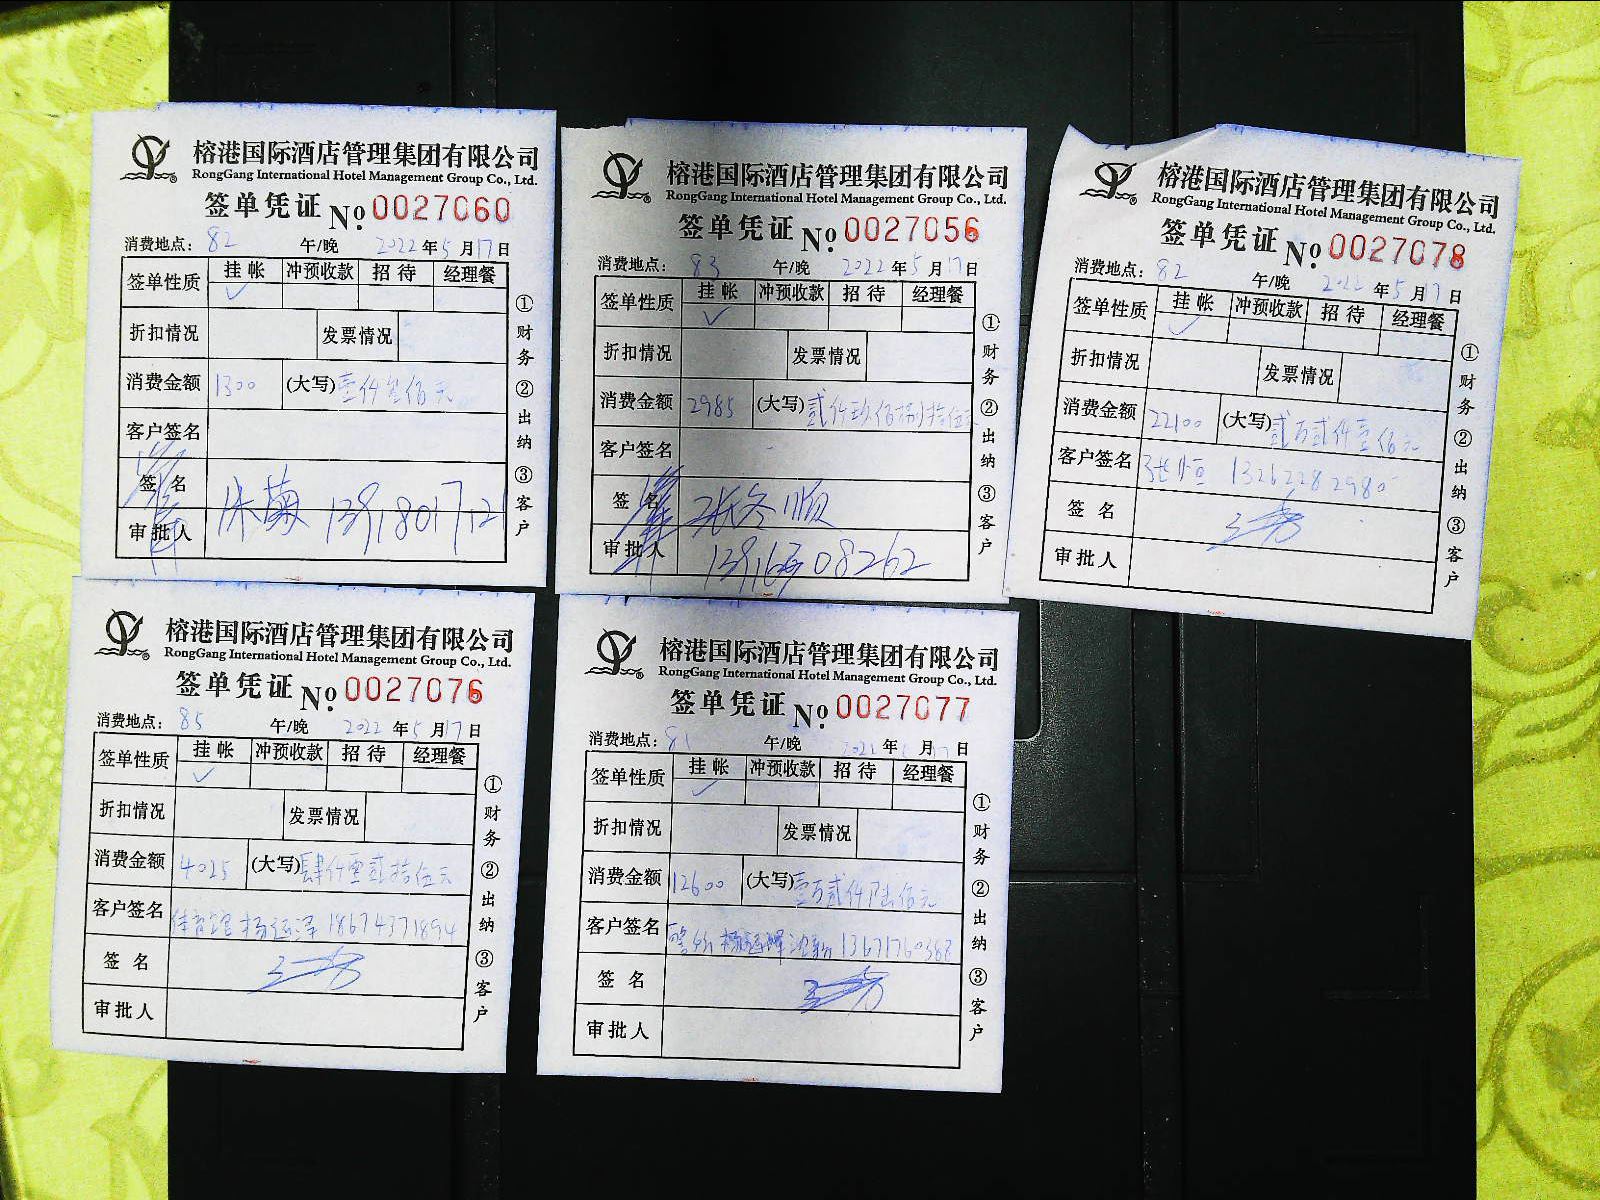 榕港国际酒店管理集团有限公司
RongGang International Hotel Management Group Co., Ltd.
签单凭证 № 0027060
消费地点: 82 午/晚 2022年5月17日
签单性质 挂帐 冲预收款 招待 经理餐
✓
折扣情况 发票情况
消费金额 1300 (大写)壹仟叁佰元
客户签名
签名
审批人
①财务②出纳③客户
榕港国际酒店管理集团有限公司
RongGang International Hotel Management Group Co., Ltd.
签单凭证 № 0027056
消费地点: 83 午/晚 2022年5月17日
签单性质 挂帐 冲预收款 招待 经理餐
✓
折扣情况 发票情况
消费金额 2985 (大写)贰仟玖佰捌拾伍
客户签名
签名 张冬顺
审批人
①财务②出纳③客户
榕港国际酒店管理集团有限公司
RongGang International Hotel Management Group Co., Ltd.
签单凭证 № 0027078
消费地点: 82 午/晚 2022年5月17日
签单性质 挂帐 冲预收款 招待 经理餐
✓
折扣情况 发票情况
消费金额 22100 (大写)贰万贰仟壹佰元
客户签名 张恒 13262282980
签名
审批人
①财务②出纳③客户
榕港国际酒店管理集团有限公司
RongGang International Hotel Management Group Co., Ltd.
签单凭证 № 0027076
消费地点: 85 午/晚 2022年5月17日
签单性质 挂帐 冲预收款 招待 经理餐
✓
折扣情况 发票情况
消费金额 4025 (大写)肆仟零贰拾伍元
客户签名 体育馆 18674371894
签名
审批人
①财务②出纳③客户
榕港国际酒店管理集团有限公司
RongGang International Hotel Management Group Co., Ltd.
签单凭证 № 0027077
消费地点: 81 午/晚 年 月17日
签单性质 挂帐 冲预收款 招待 经理餐
✓
折扣情况 发票情况
消费金额 12600 (大写)壹万贰仟陆佰元
客户签名 13671760368
签名
审批人
①财务②出纳③客户